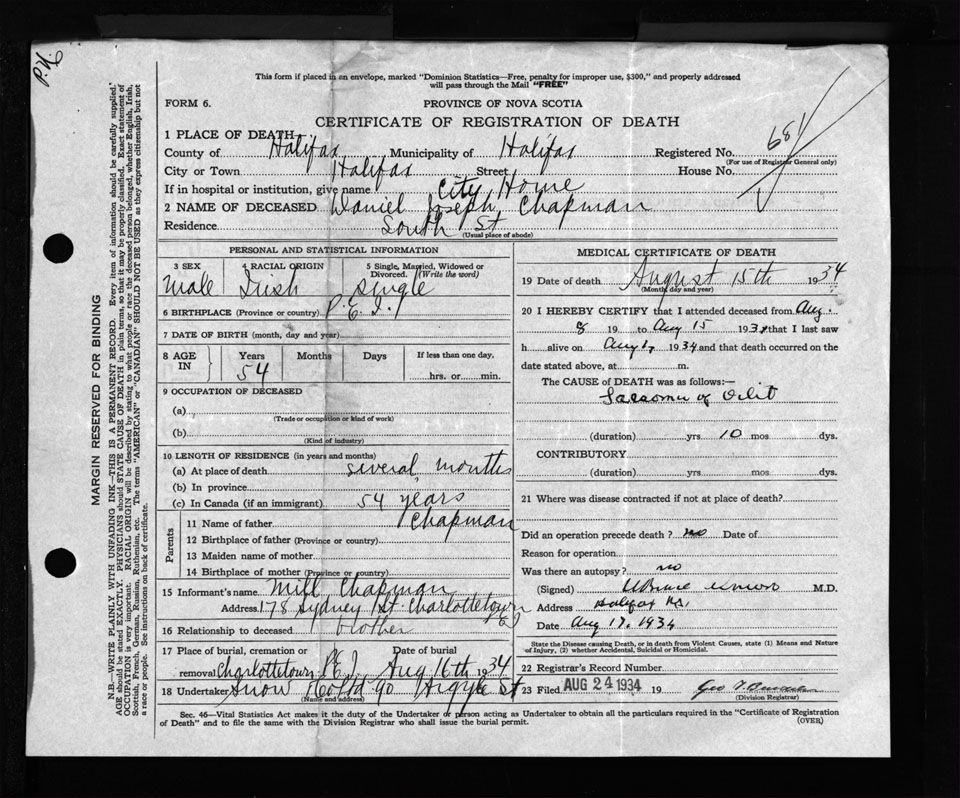 P.N.
This form if placed in an envelope, marked "Dominion Statistics—Free, penalty for improper use, $300," and properly addressed
will pass through the Mail "FREE"
FORM 6.
PROVINCE OF NOVA SCOTIA
CERTIFICATE OF REGISTRATION OF DEATH
1 PLACE OF DEATH
County of Halifax Municipality of Halifax Registered No. 681
(For use of Registrar General only)
City or Town Halifax Street House No.
If in hospital or institution, give name City Home
2 NAME OF DECEASED Daniel Joseph Chapman
Residence South St
(Usual place of abode)
PERSONAL AND STATISTICAL INFORMATION
3 SEX 4 RACIAL ORIGIN 5 Single, Married, Widowed or Divorced. (Write the word)
Male Irish single
6 BIRTHPLACE (Province or country) P.E.I.
7 DATE OF BIRTH (month, day and year)
8 AGE IN Years Months Days If less than one day.
54 hrs. or min.
9 OCCUPATION OF DECEASED
(a)
(Trade or occupation or kind of work)
(b)
(Kind of industry)
10 LENGTH OF RESIDENCE (in years and months)
(a) At place of death several months
(b) In province
(c) In Canada (if an immigrant) 54 years
Parents
11 Name of father Chapman
12 Birthplace of father (Province or country)
13 Maiden name of mother
14 Birthplace of mother (Province or country)
15 Informant's name Mill Chapman
Address 178 Sydney St. Charlottetown
16 Relationship to deceased brother
17 Place of burial, cremation or removal Charlottetown P.E.I. Date of burial Aug 16th 1934
18 Undertaker Snow & Co Ltd 90 Argyle St
(Name and address)
MEDICAL CERTIFICATE OF DEATH
19 Date of death August 15th 1934
(Month day and year)
20 I HEREBY CERTIFY that I attended deceased from Aug.
8 19 to Aug 15 1934 that I last saw
h alive on Aug 1934 and that death occurred on the
date stated above, at m.
The CAUSE of DEATH was as follows:—
of
(duration) yrs 10 mos dys.
CONTRIBUTORY
(duration) yrs mos dys.
21 Where was disease contracted if not at place of death?
Did an operation precede death? no Date of
Reason for operation
Was there an autopsy? no
(Signed) M.D.
Address Halifax N.S.
Date Aug 17. 1934
State the Disease causing Death, or in death from Violent Causes, state (1) Means and Nature
of Injury, (2) whether Accidental, Suicidal or Homicidal.
22 Registrar's Record Number
23 Filed AUG 24 1934 19 Geo
(Division Registrar)
Sec. 46—Vital Statistics Act makes it the duty of the Undertaker or person acting as Undertaker to obtain all the particulars required in the "Certificate of Registration
of Death" and to file the same with the Division Registrar who shall issue the burial permit. (OVER)
MARGIN RESERVED FOR BINDING
N.B.—WRITE PLAINLY WITH UNFADING INK—THIS IS A PERMANENT RECORD. Every item of information should be carefully supplied.
AGE should be stated EXACTLY. PHYSICIANS should STATE CAUSE OF DEATH in plain terms, so that it may be properly classified. Exact statement of
OCCUPATION is very important. RACIAL ORIGIN will be described by stating to what people or race the deceased person belonged, whether English, Irish,
Scottish, French, German, Russian, Ruthenian, etc. The terms "AMERICAN" or "CANADIAN" SHOULD NOT BE USED as they express citizenship but not
a race or people. See instructions on back of certificate.